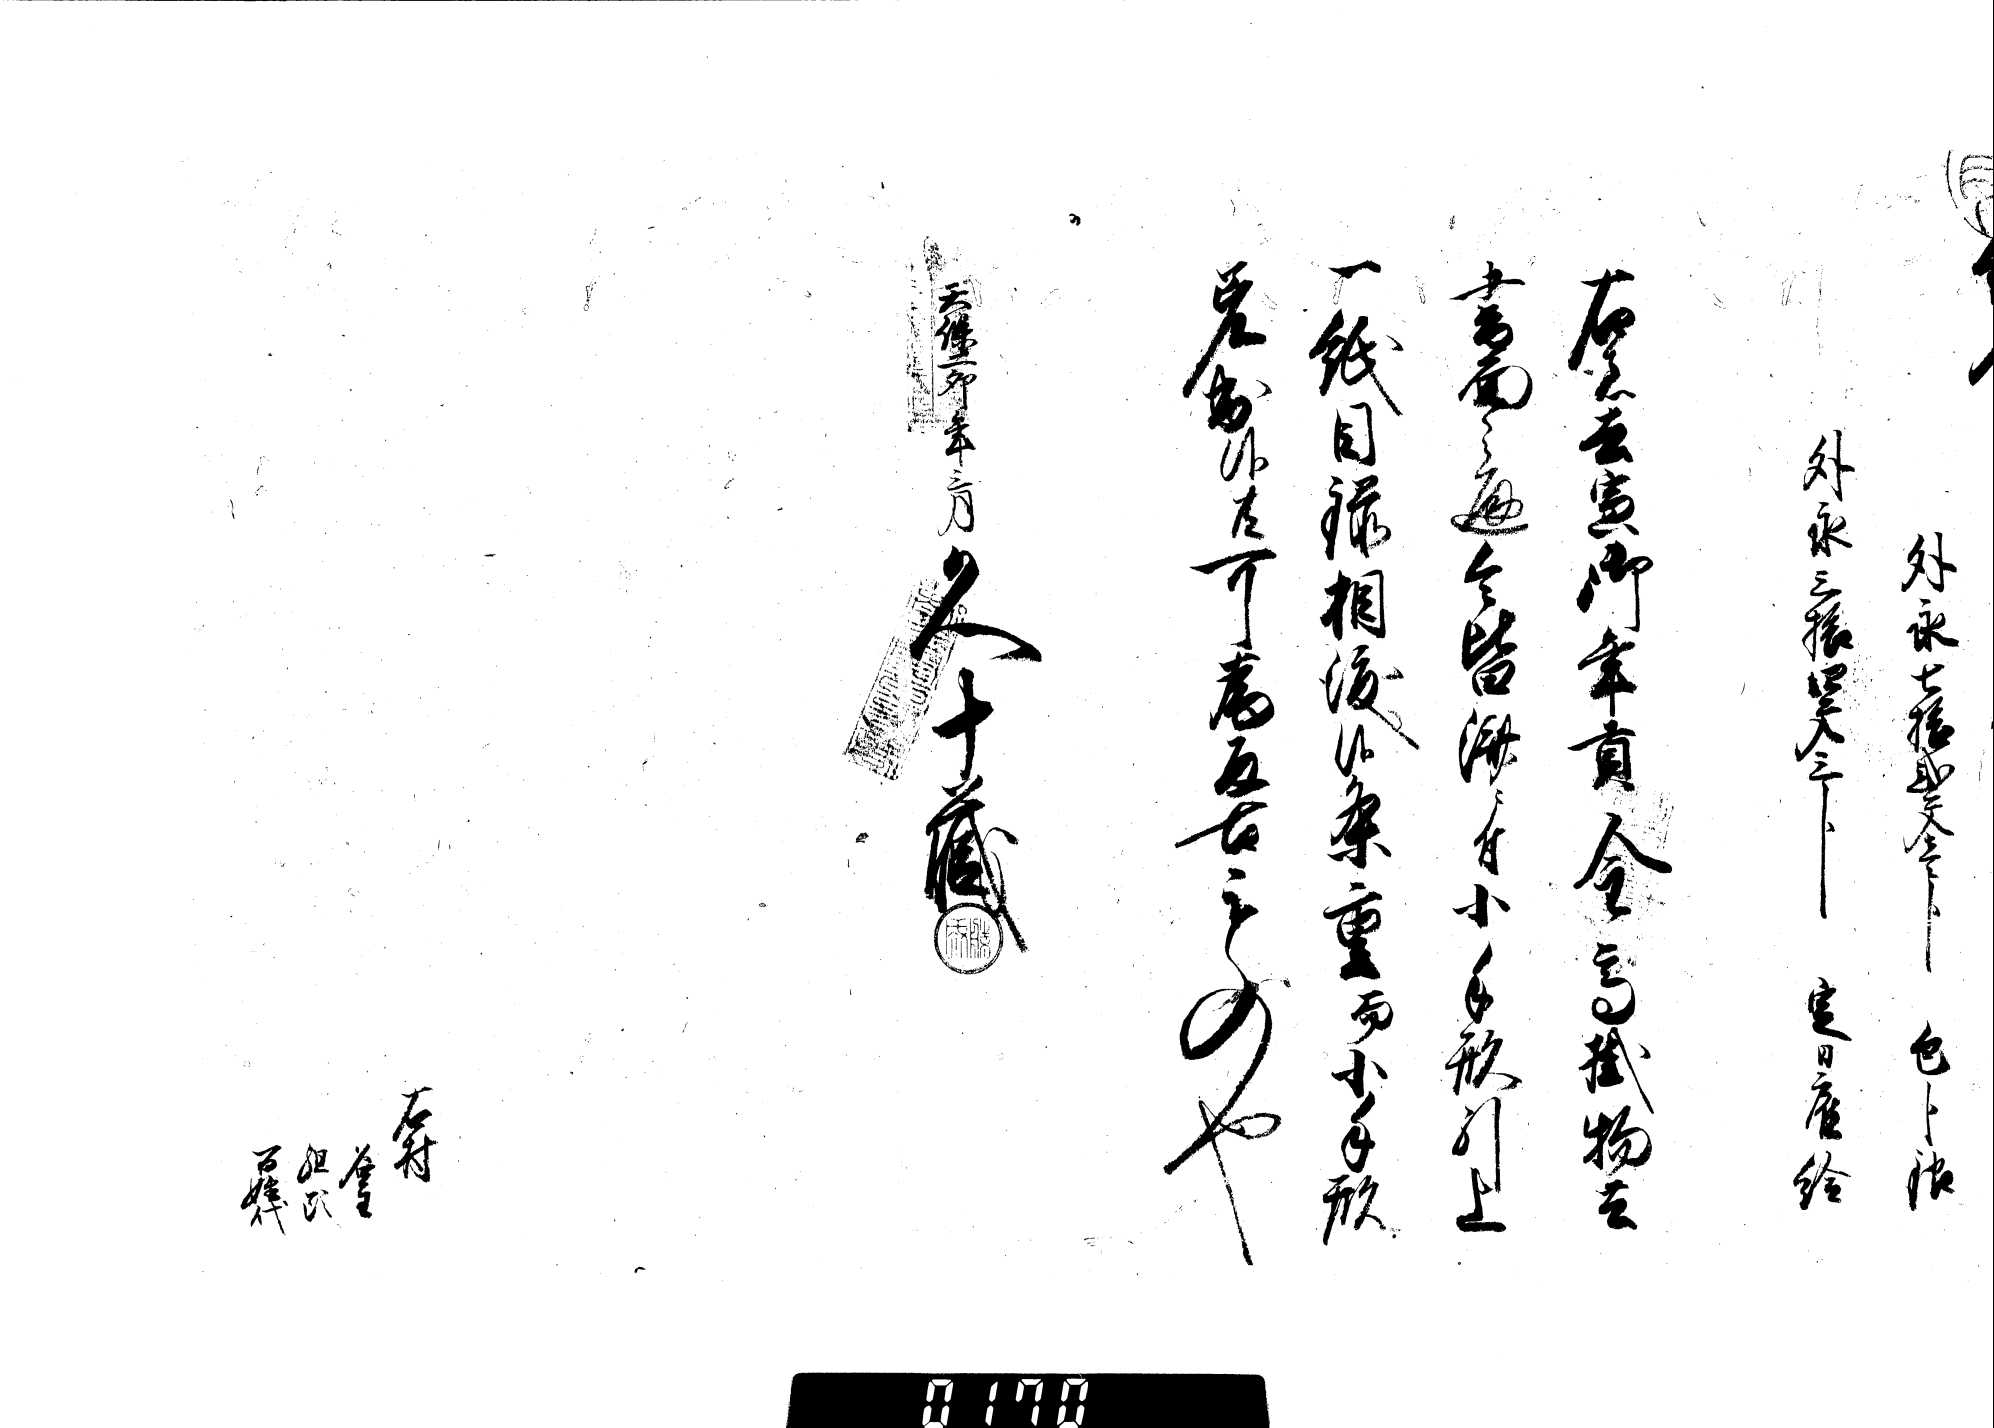 外永七拾弐文八分 包分銀
外永三拾四文三分 定日雇給
右者去寅御年貢金高掛物共
書面之通令皆済ニ付小手形引上
一紙目録相渡候条重而小手形
差出候共可為反古もの也
天保二卯年三月 久 十蔵
右村
名主
組頭
百姓代
0170